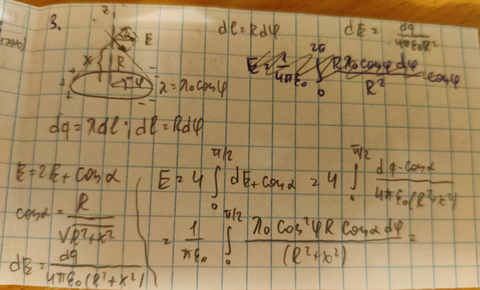 3.
z
E
x
R
φ
λ = λ₀cosφ
dl = Rdφ
dE = dq / 4πε₀R²
E = 1/4πε₀ ∫₀^2π Rλ₀cosφdφ / R² cosφ
dq = λdl ; dl = Rdφ
E = 2E₊cosα
cosα = R / √(R²+x²)
dE = dq / 4πε₀(R²+x²)
E = 4 ∫₀^π/2 dE₊cosα = 4 ∫₀^π/2 dq·cosα / 4πε₀(R²+x²)
= 1/πε₀ ∫₀^π/2 λ₀cos²φR cosαdφ / (R²+x²) =